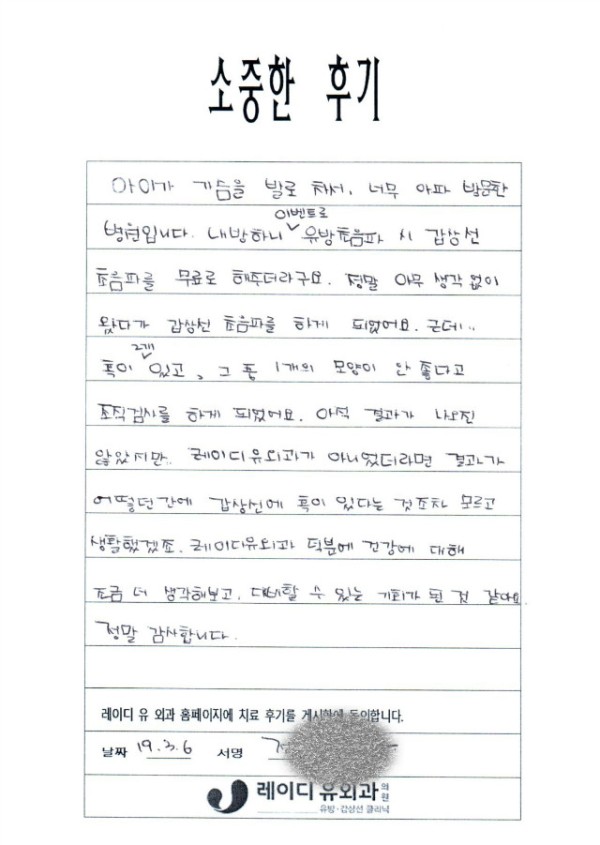 소중한 후기
아이가 가슴을 발로 차서, 너무 아파 방문한
병원입니다. 내방하니 이벤트로 유방초음파 시 갑상선
초음파를 무료로 해주더라구요. 정말 아무 생각 없이
왔다가 갑상선 초음파를 하게 되었어요. 근데..
혹이 2개 있고, 그 중 1개의 모양이 안 좋다고
조직검사를 하게 되었어요. 아직 결과가 나오진
않았지만.. 레이디유외과가 아니었더라면 결과가
어떻던간에 갑상선에 혹이 있다는 것조차 모르고
생활했겠죠. 레이디유외과 덕분에 건강에 대해
조금 더 생각해보고, 대비할 수 있는 기회가 된 것 같아요
정말 감사합니다.
레이디 유 외과 홈페이지에 치료 후기를 게시함에 동의합니다.
날짜 19.3.6 서명
레이디 유외과의원
유방·갑상선 클리닉